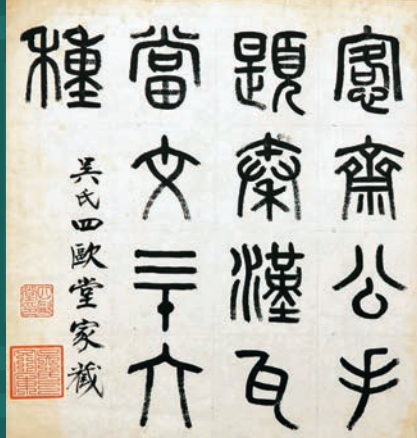 愙齋公手
題秦漢瓦
當文三十六
種
吳氏四歐堂家藏